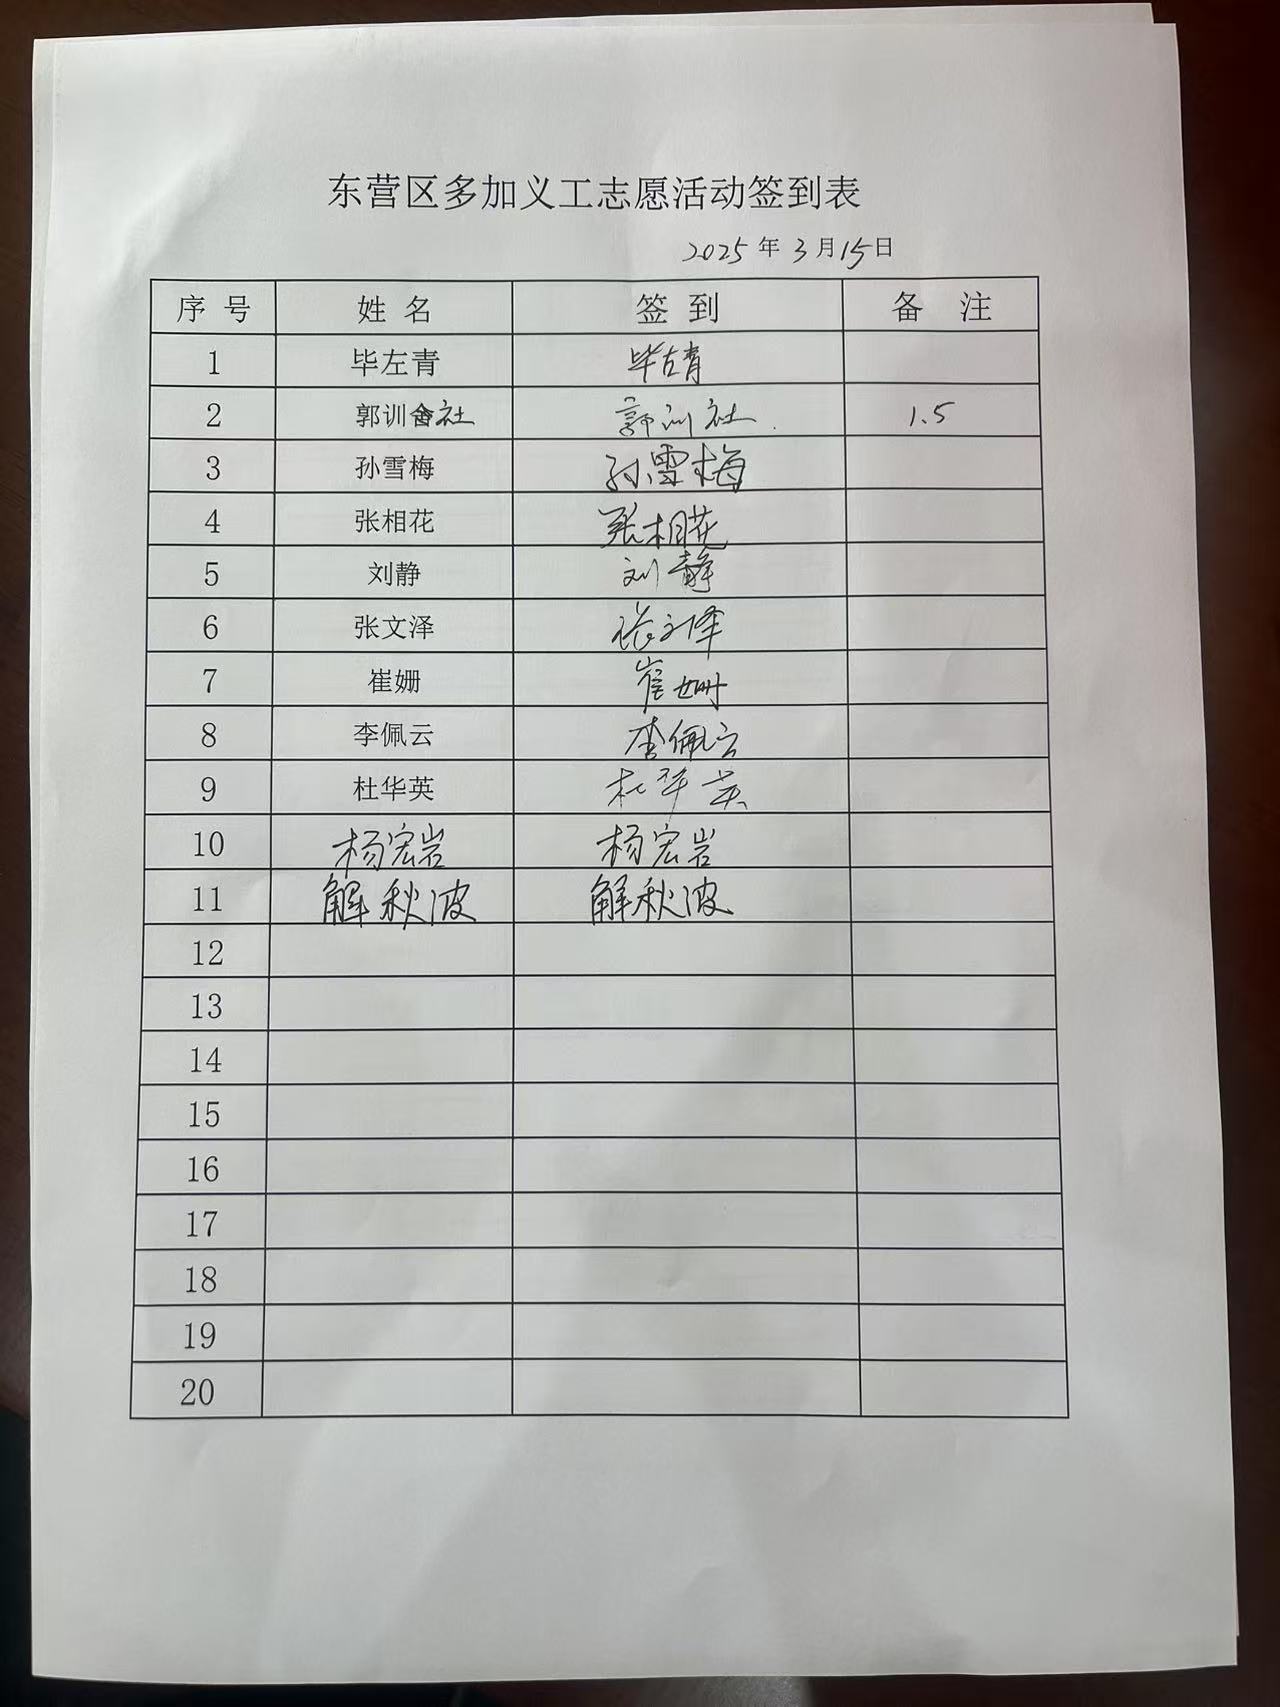 东营区多加义工志愿活动签到表
2025年3月15日
序号 姓名 签到 备注
1 毕左青 毕左青
2 郭训社 郭训社 1.5
3 孙雪梅 孙雪梅
4 张相花 张相花
5 刘静 刘静
6 张文泽 张文泽
7 崔姗 崔姗
8 李佩云 李佩云
9 杜华英 杜华英
10 杨宏岩 杨宏岩
11 解秋波 解秋波
12
13
14
15
16
17
18
19
20